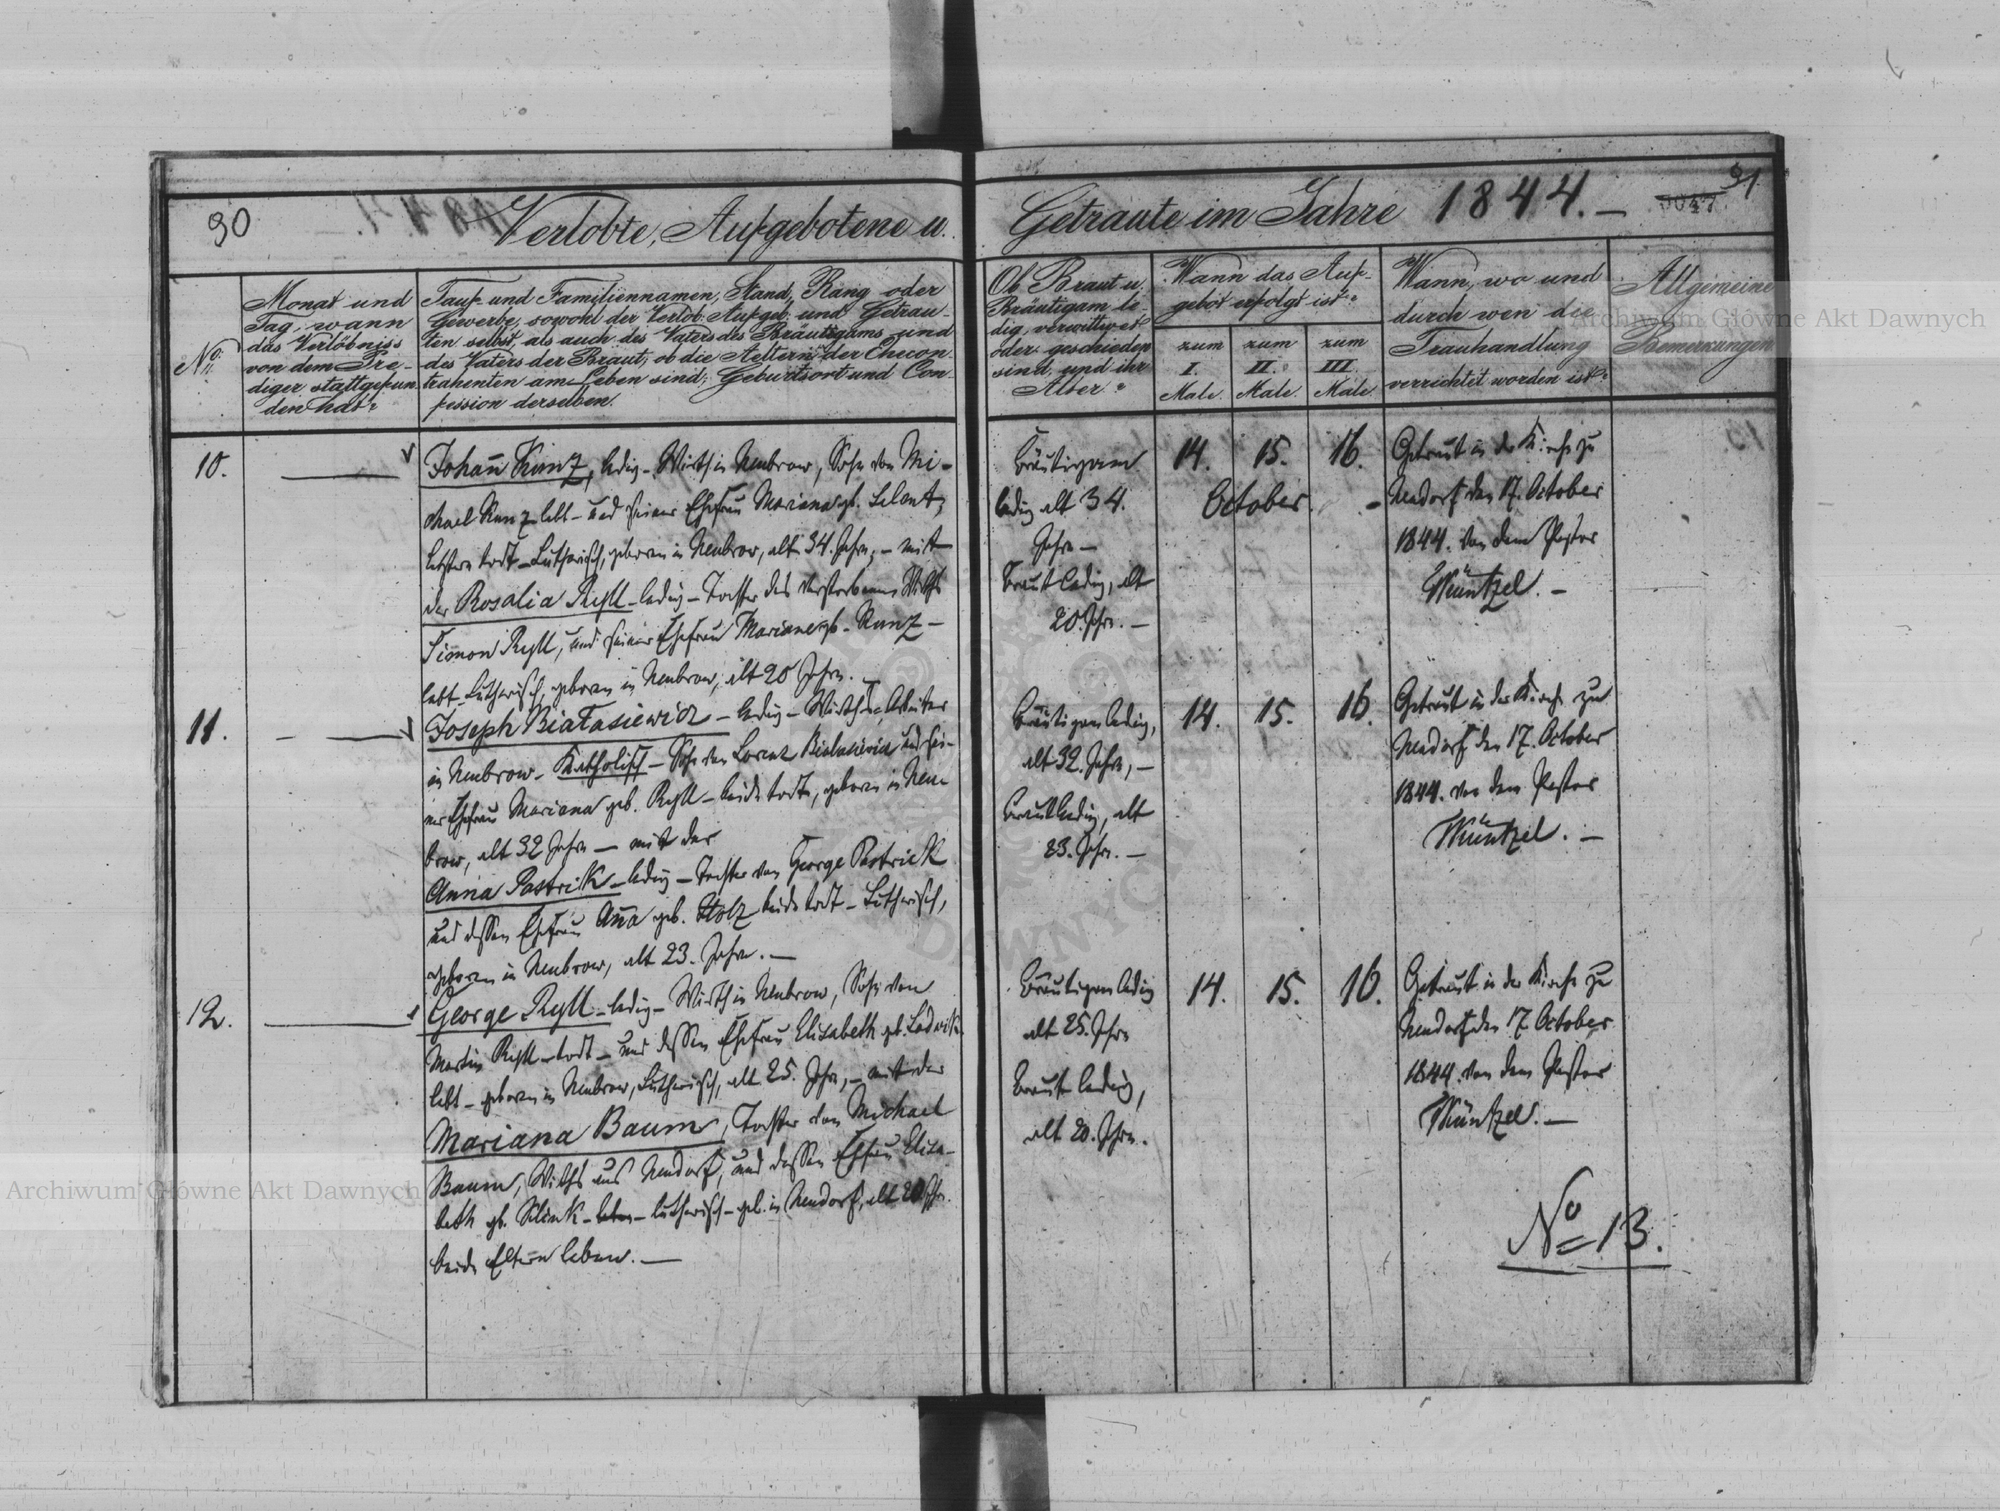 30
Verlobte, Aufgebotene u.
Getraute im Jahre 1844. –
31
No.
Monat und
Tag, wann
das Verlöbniss
von dem Pre-
diger stattgefun
den hat?
Tauf- und Familiennamen, Stand, Rang oder
Gewerbe, sowohl der Verlob. Aufgeb. und Getrau-
ten selbst, als auch des Vaters des Bräutigams und
des Vaters der Braut; ob die Aeltern der Checon-
trahenten am Leben sind; Geburtsort und Con-
fession derselben.
Ob Braut u.
Bräutigam le
dig, verwittwet
oder geschieden
sind, und ihr
Alter?
Wann das Auf-
gebot erfolgt ist?
zum
I.
Male.
zum
II.
Male.
zum
III.
Male.
Wann, wo und
durch wen die
Trauhandlung
verrichtet worden ist?
Allgemeine
Bemerkungen
10.
Johan̄ Kunz, ledig – Wirth in Neubrow, Sohn von Mi-
chael Kunz lebt – und seiner Ehefrau Mariana gb.
letztere todt – Lutherisch, geboren in Neubrow, alt 34. Jahre, – mit
der Rosalia Ryll – ledig – Tochter des verstorbenen Wirths
Simon Ryll, und seiner Ehefrau Mariane gb. Kunz –
lebt – Lutherisch, geboren in Neubrow, alt 20 Jahre. –
Bräutigam
ledig alt 34.
Jahre –
Braut ledig, alt
20. Jahre. –
14. 15. 16.
October.
Getraut in der Kirche zu
Neudorf den 17. October
1844. von dem Pastor
Müntzel. –
11.
Joseph Białasiewicz – ledig – Wirths Arbeiter
in Neubrow – Katholisch – Sohn von Lorenz Bialasiewicz und sei-
ner Ehefrau Mariana geb. Ryll – beide todt, geboren in Neu
brow, alt 32 Jahre – mit der
Anna Pastrick – ledig – Tochter von George Pastrick
und dessen Ehefrau An̄a geb. Stolz beide todt – Lutherisch,
geboren in Neubrow, alt 23. Jahre. –
Bräutigam ledig,
alt 32. Jahre, –
Braut ledig, alt
23. Jahre. –
14. 15. 16.
Getraut in der Kirche zu
Neudorf den 17. October
1844. von dem Pastor
Müntzel. –
12.
George Ryll – ledig – Wirth in Neubrow, Sohn von
Martin Ryll – todt – und dessen Ehefrau Elisabeth gb. Ludwik
lebt – geboren in Neubrow, Lutherisch, alt 25. Jahre, – mit der
Mariana Baum, Tochter von Michael
Baum, Wirths aus Neudorf, und dessen Ehefrau Elisa-
beth gb. – lutherisch – geb. in Neudorf, alt 20 Jahre.
beide Eltern leben. –
Bräutigam ledig
alt 25. Jahre
Braut ledig,
alt 20. Jahre.
14. 15. 16.
Getraut in der Kirche zu
Neudorf den 17. October
1844. von dem Pastor
Müntzel. –
No 13.
Archiwum Główne Akt Dawnych
Archiwum Główne Akt Dawnych